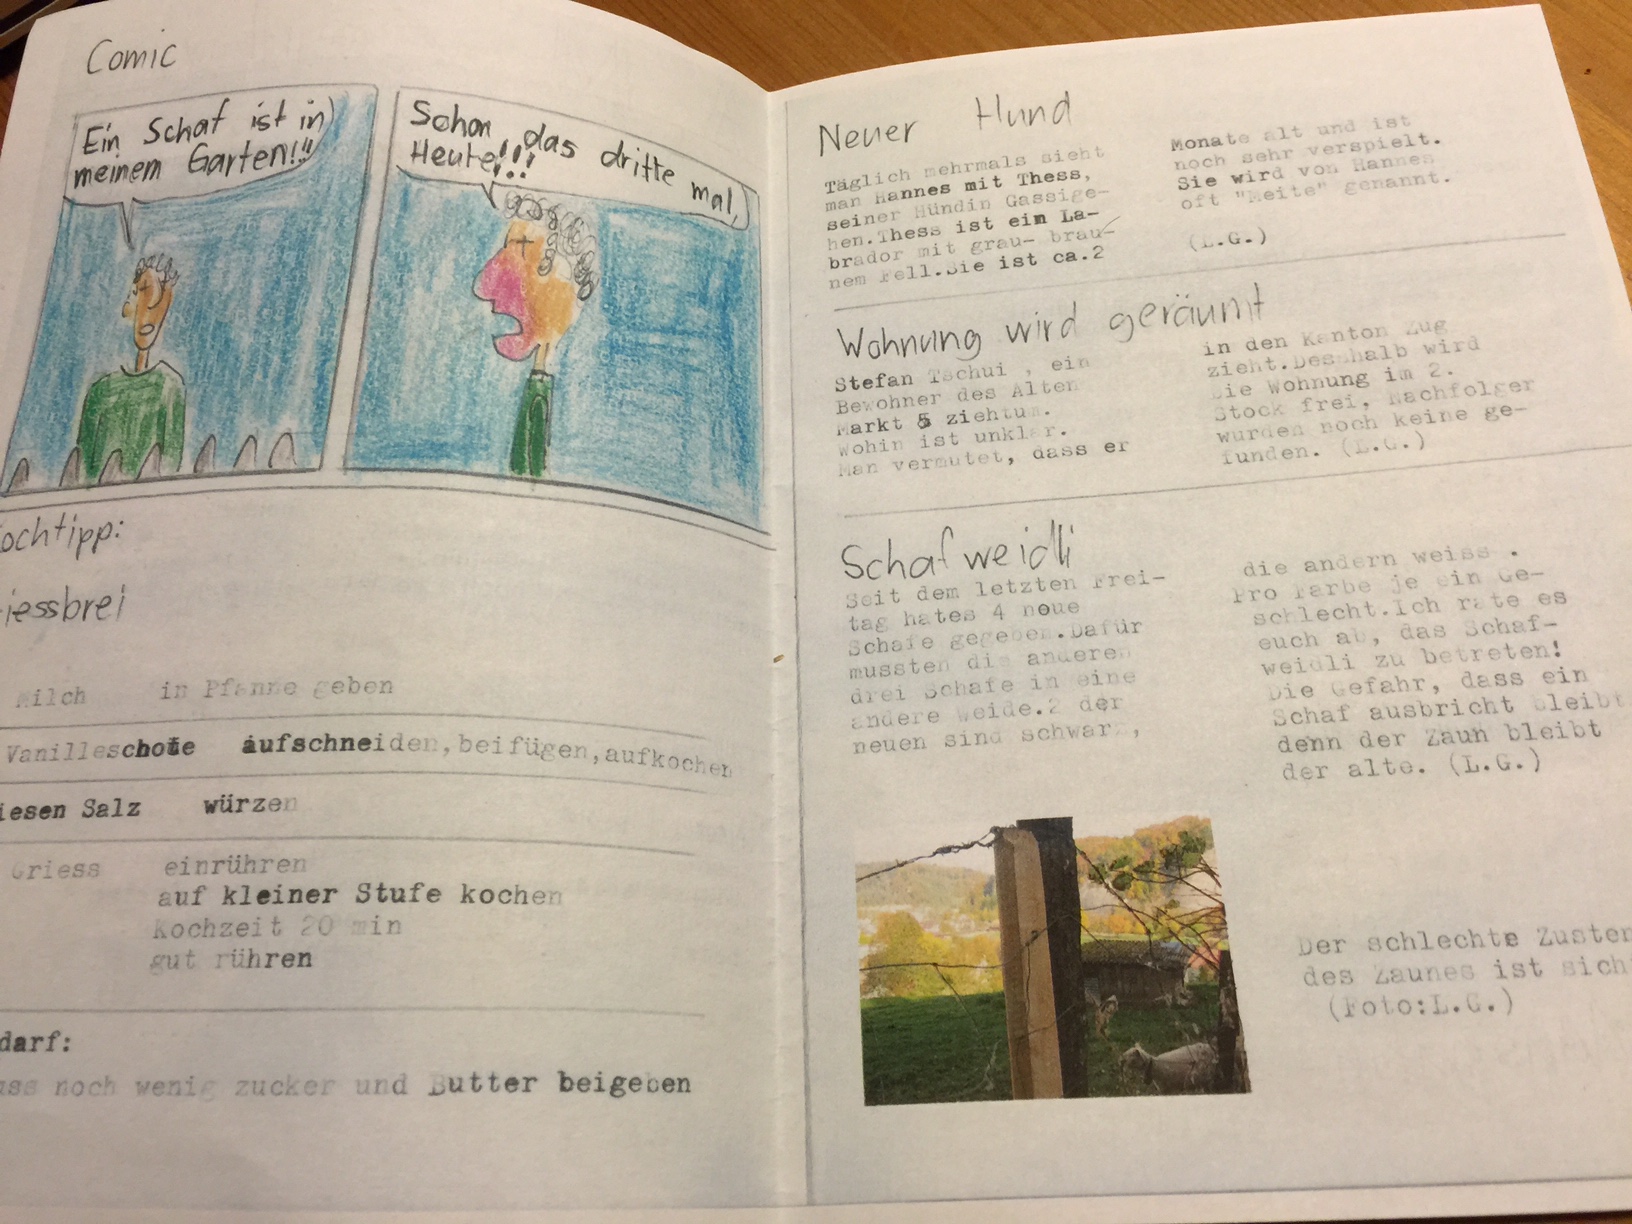 Comic
Ein Schaf ist in
meinem Garten!!!
Schon das dritte mal,
Heute!!!
ochtipp:
iessbrei
Milch in Pfanne geben
Vanilleschote aufschneiden,beifügen,aufkochen
iesen Salz würzen
Griess einrühren
auf kleiner Stufe kochen
Kochzeit 20 min
gut rühren
darf:
ss noch wenig zucker und Butter beigeben
Neuer Hund
Täglich mehrmals sieht
man Hannes mit Thess,
seiner Hündin Gassige-
hen.Thess ist ein La-
brador mit grau- brau-
nem Fell.Sie ist ca.2
Monate alt und ist
noch sehr verspielt.
Sie wird von Hannes
oft "Meite" genannt.
(L.G.)
Wohnung wird geräumt
Stefan Tschui , ein
Bewohner des Alten
Markt 5 ziehtum.
Wohin ist unklar.
Man vermutet, dass er
in den Kanton Zug
zieht.Desshalb wird
Die Wohnung im 2.
Stock frei, Nachfolger
wurden noch keine ge-
funden. (L.G.)
Schafweidli
Seit dem letzten Frei-
tag hates 4 neue
Schafe gegeben.Dafür
mussten die anderen
drei Schafe in eine
andere Weide.2 der
neuen sind schwarz,
die andern weiss .
Pro Farbe je ein Ge-
schlecht.Ich rate es
euch ab, das Schaf-
weidli zu betreten!
Die Gefahr, dass ein
Schaf ausbricht bleibt
denn der Zaun bleibt
der alte. (L.G.)
Der schlechte Zusten
des Zaunes ist sich
(Foto:L.G.)